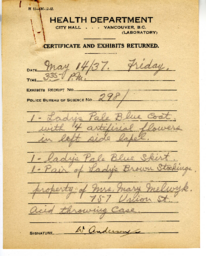 HEALTH DEPARTMENT
CITY HALL VANCOUVER, B.C.
(LABORATORY)
CERTIFICATE AND EXHIBITS RETURNED.
DATE May 14/37. Friday.
TIME 3:35 P.M.
EXHIBITS RECEIPT NO.
POLICE BUREAU OF SCIENCE NO. 2981
1 - Lady's Pale Blue Coat
with 4 artificial flowers
in left side lapel
1 - lady's Pale Blue Skirt
1 - Pair of Lady's Brown Stockings
property of Mrs. Mary
787 Union St.
Acid throwing Case
SIGNATURE